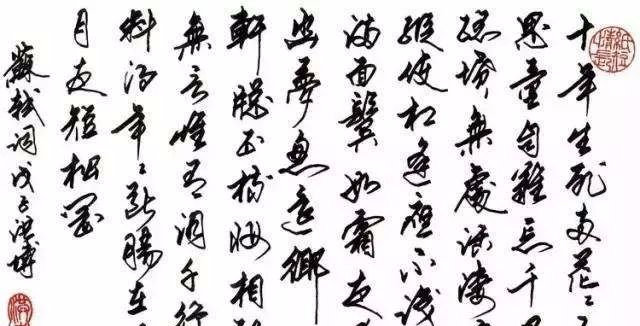 十年生死兩茫〻
思量自難忘千
孤墳無處話淒
縱使相逢應不識
滿面鬢如霜夜
幽夢忽還鄉
軒窗正梳妝相
無言惟有淚千行
料得年〻斷腸
月夜短松岡
蘇軾詞戊子洪